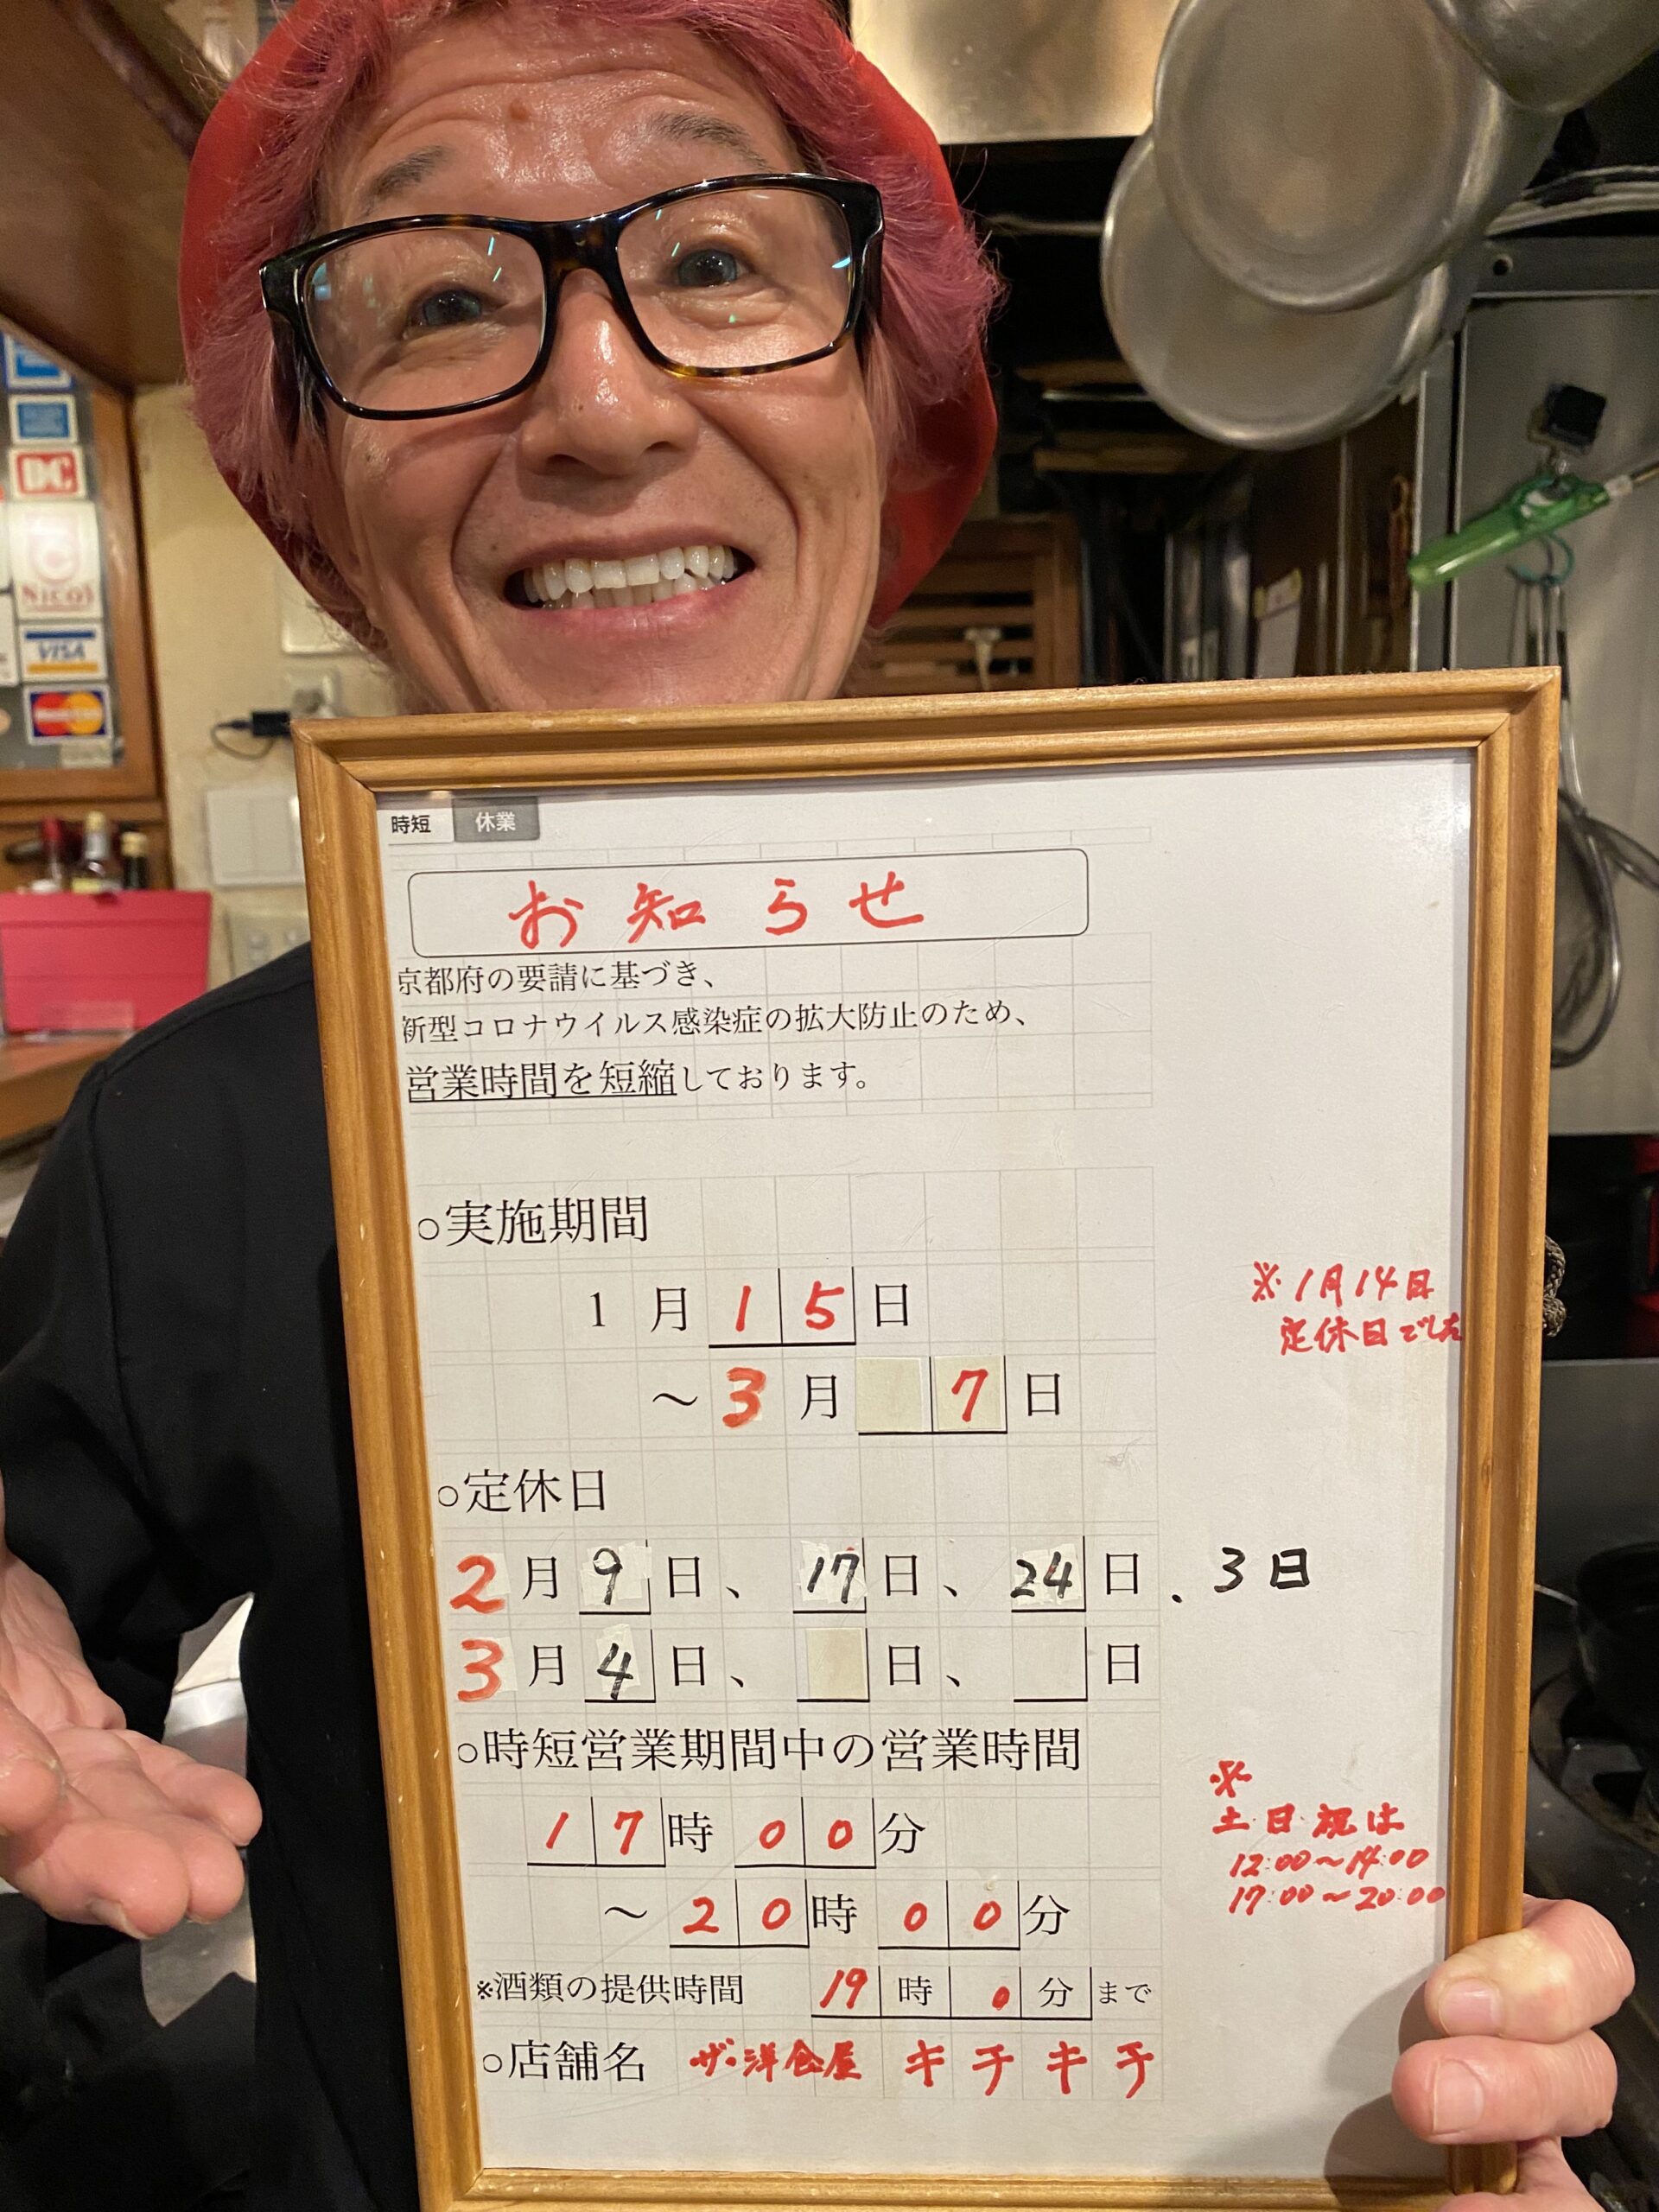 DC
NICOS
VISA
MasterCard
時短 休業
お知らせ
京都府の要請に基づき、
新型コロナウイルス感染症の拡大防止のため、
営業時間を短縮しております。
○実施期間
1月15日
※1月14日
定休日でした
～3月7日
○定休日
2月9日、17日、24日.3日
3月4日、 日、 日
○時短営業期間中の営業時間
17時00分
～20時00分
※
土日祝は
12:00～14:00
17:00～20:00
※酒類の提供時間 19時0分まで
○店舗名 ザ・洋食屋 キチキチ